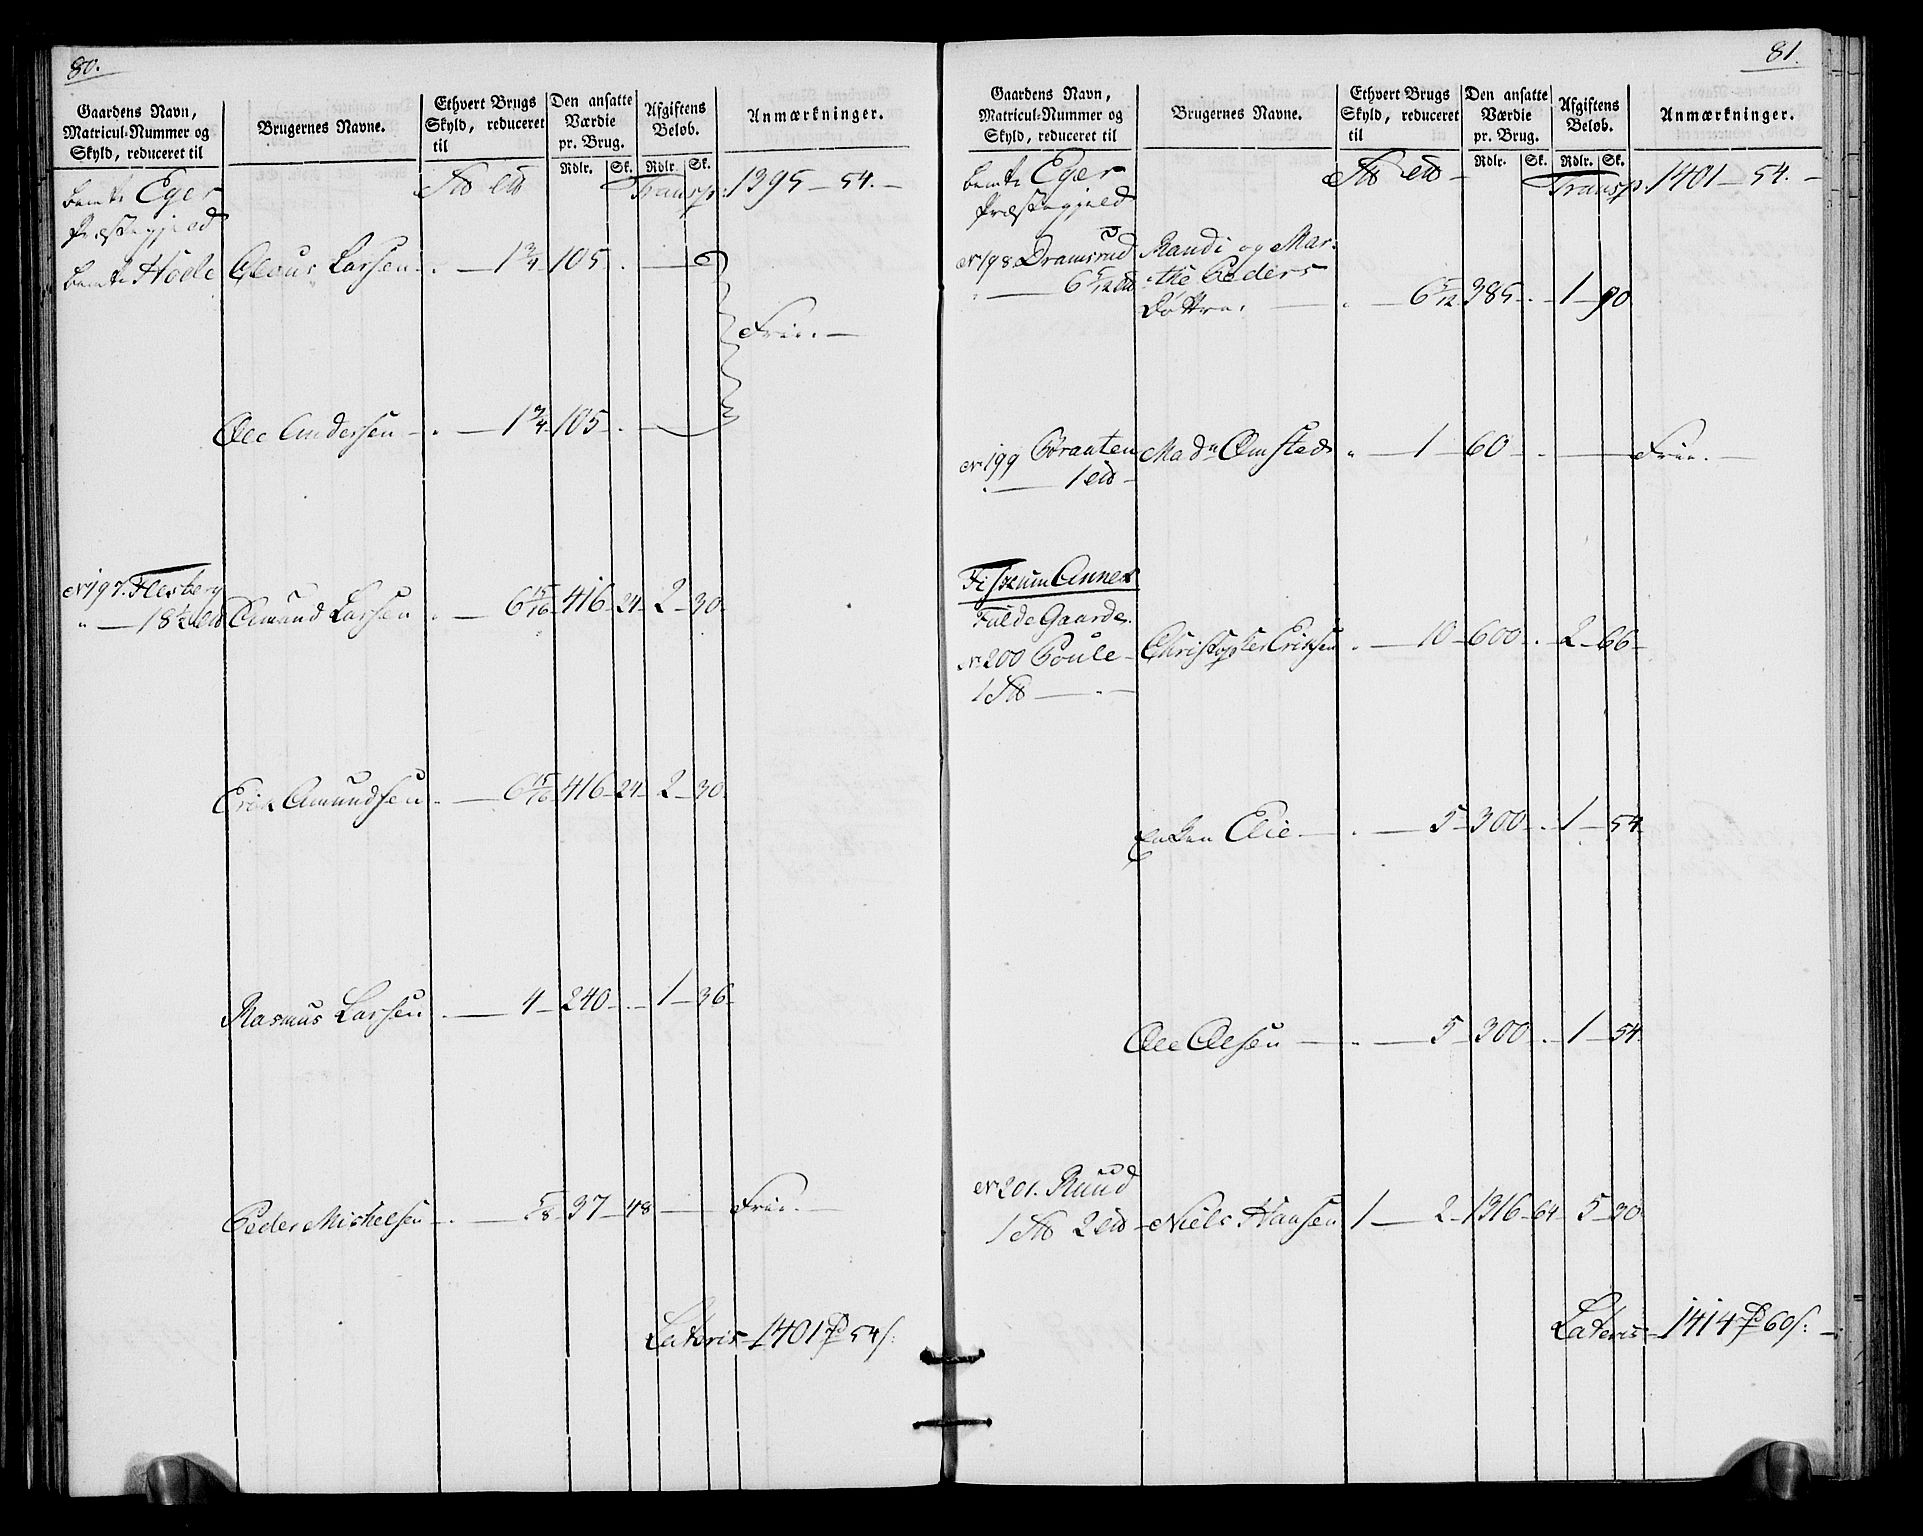 80.
Gaardens Navn, Matricul-Nummer og Skyld, reduceret til
Brugernes Navne.
Ethvert Brugs Skyld, reduceret til
Den ansatte Værdie pr. Brug.
Afgiftens Beløb.
Anmærkninger.
Rdlr. Sk. Rdlr. Sk.
bemte Eger Transp. 1395 - 54. -
Præstegjeld
bemte Hoele Claus Larsen - 1 3/4 - 105 - . -
Frie. -
Ole Andersen - . - 1 3/4 - 105 - . -
No 197. Flesberg
" - 18 1/2 Amund Larsen . - 6 15/16 - 416 - 24 - 2 - 30 -
Erik Amundsen . - 6 15/16 - 416 - 24 - 2 - 30 -
Rasmus Larsen . - 4 - 240 - . - 1 - 36 -
Peder Michelsen - . - 5/8 - 37 - 48 - Frie. -
Lateris - 1401 54 s.
81.
Gaardens Navn, Matricul-Nummer og Skyld, reduceret til
Brugernes Navne.
Ethvert Brugs Skyld, reduceret til
Den ansatte Værdie pr. Brug.
Afgiftens Beløb.
Anmærkninger.
Rdlr. Sk. Rdlr. Sk.
bemte Eger Transp. 1401 - 54. -
Præstegjeld
No 198 Dramsrud Randi og Mar-
" - 6 5/12 the Peders
Døttre. - . - 6 5/12 - 385 - . - 1 - 90
No 199 Madm Omsted " - 1 - 60 - . - Frie. -
" - 1
Fiskum Annex
Fulde Gaarde.
No 200 Christopher Eriksen . - 10 - 600 - . - 2 - 66 -
1
Enken Elie - . - 5 - 300 - . - 1 - 54
Ole Olsen - . - 5 - 300 - . - 1 - 54
No 201. Ruud
1 2 - Niels Hansen 1 - 2 - 1316 - 64 - 5 - 30
Lateris - 1414 60 s. -